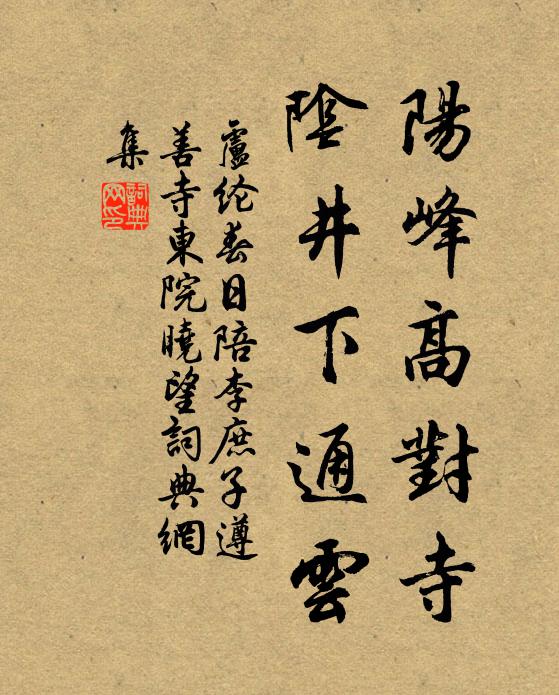 陽峰高對寺
陰井下通雲
盧纶春日陪李庶子遵
善寺東院曉望詞典網
集
詞典
网印